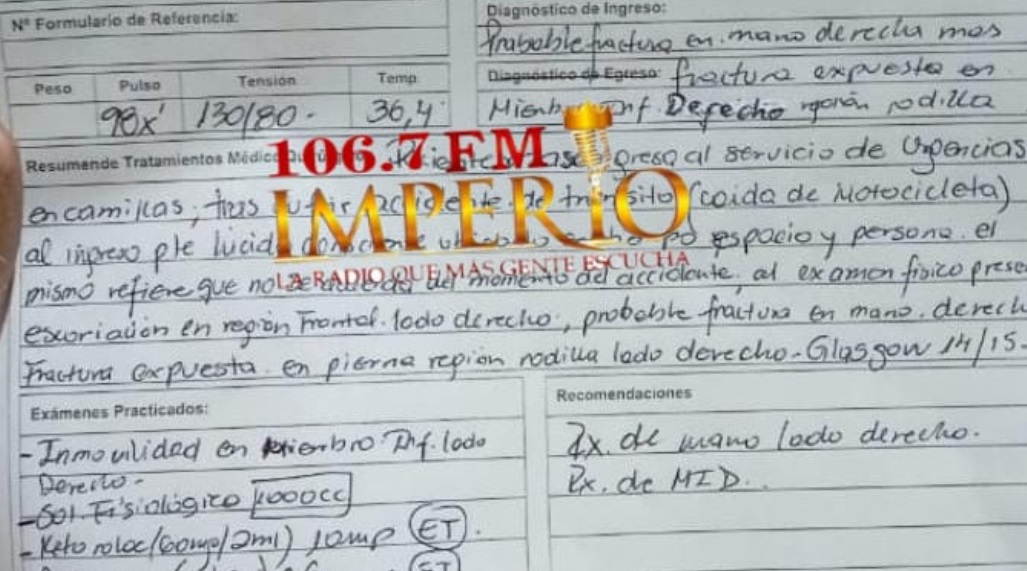 Nº Formulario de Referencia:
Diagnóstico de Ingreso:
Probable fractura en mano derecha mas
Peso Pulso Tension Temp
Diagnóstico de Egreso: fractura expuesta en
98x' 130/80. 36,4
Miembro Inf. Derecho región rodilla
106.7 FM
IMPERIO
LA RADIO QUE MAS GENTE ESCUCHA
Resumende Tratamientos Médico ingresa al servicio de Urgencias
en camillas, tras accidente de tránsito (caida de Motocicleta)
al ingreso pte lucido espacio y persona. el
mismo refiere que no del momento del accidente. al examen físico prese
escoriación en región Frontal lado derecho, probable fractura en mano. derech
Fractura expuesta en pierna región rodilla lado derecho - Glasgow 14/15.
Exámenes Practicados:
Recomendaciones
- Inmovilidad en Miembro Inf. lado
Derecho -
- Sol. Fisiológico 1000cc
- Ketoroloc (60mg/2ml) 1amp ET.
Rx. de mano lado derecho.
Rx. de MID.